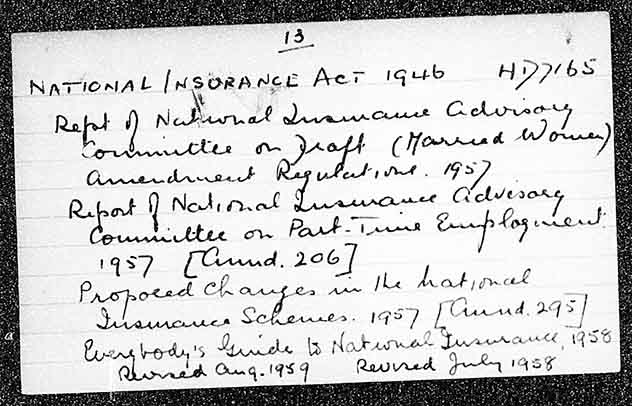 13
NATIONAL INSURANCE ACT 1946 HD7165
Rept of National Insurance Advisory
Committee on Draft (Married Women)
Amendment Regulations. 1957
Report of National Insurance Advisory
Committee on Part-Time Employment.
1957 [Cmnd. 206]
Proposed Changes in the National
Insurance Schemes. 1957 [Cmnd. 295]
Everybody's Guide to National Insurance, 1958
Revised Aug. 1959 Revised July 1958